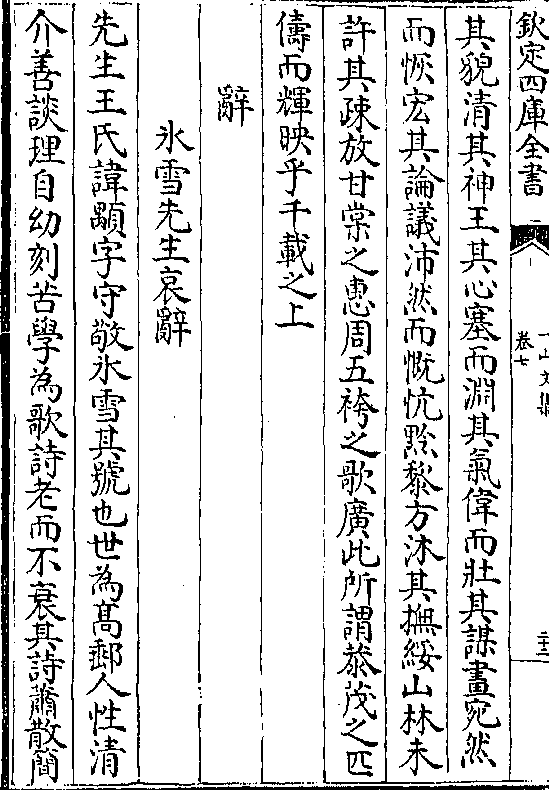 欽定四庫全書
一山文集
卷七
二十二
其貌清其神王其心塞而淵其氣偉而壯其謀畫宛然
而恢宏其論議沛然而慨忼黔黎方沐其撫綏山林未
許其疎放甘棠之惠周五袴之歌廣此所謂恭茂之匹
儔而輝映乎千載之上
辭
氷雪先生哀辭
先生王氏諱顒字守敬氷雪其號也世為髙郵人性清
介善談理自幼刻苦學為歌詩老而不衰其詩蕭散簡